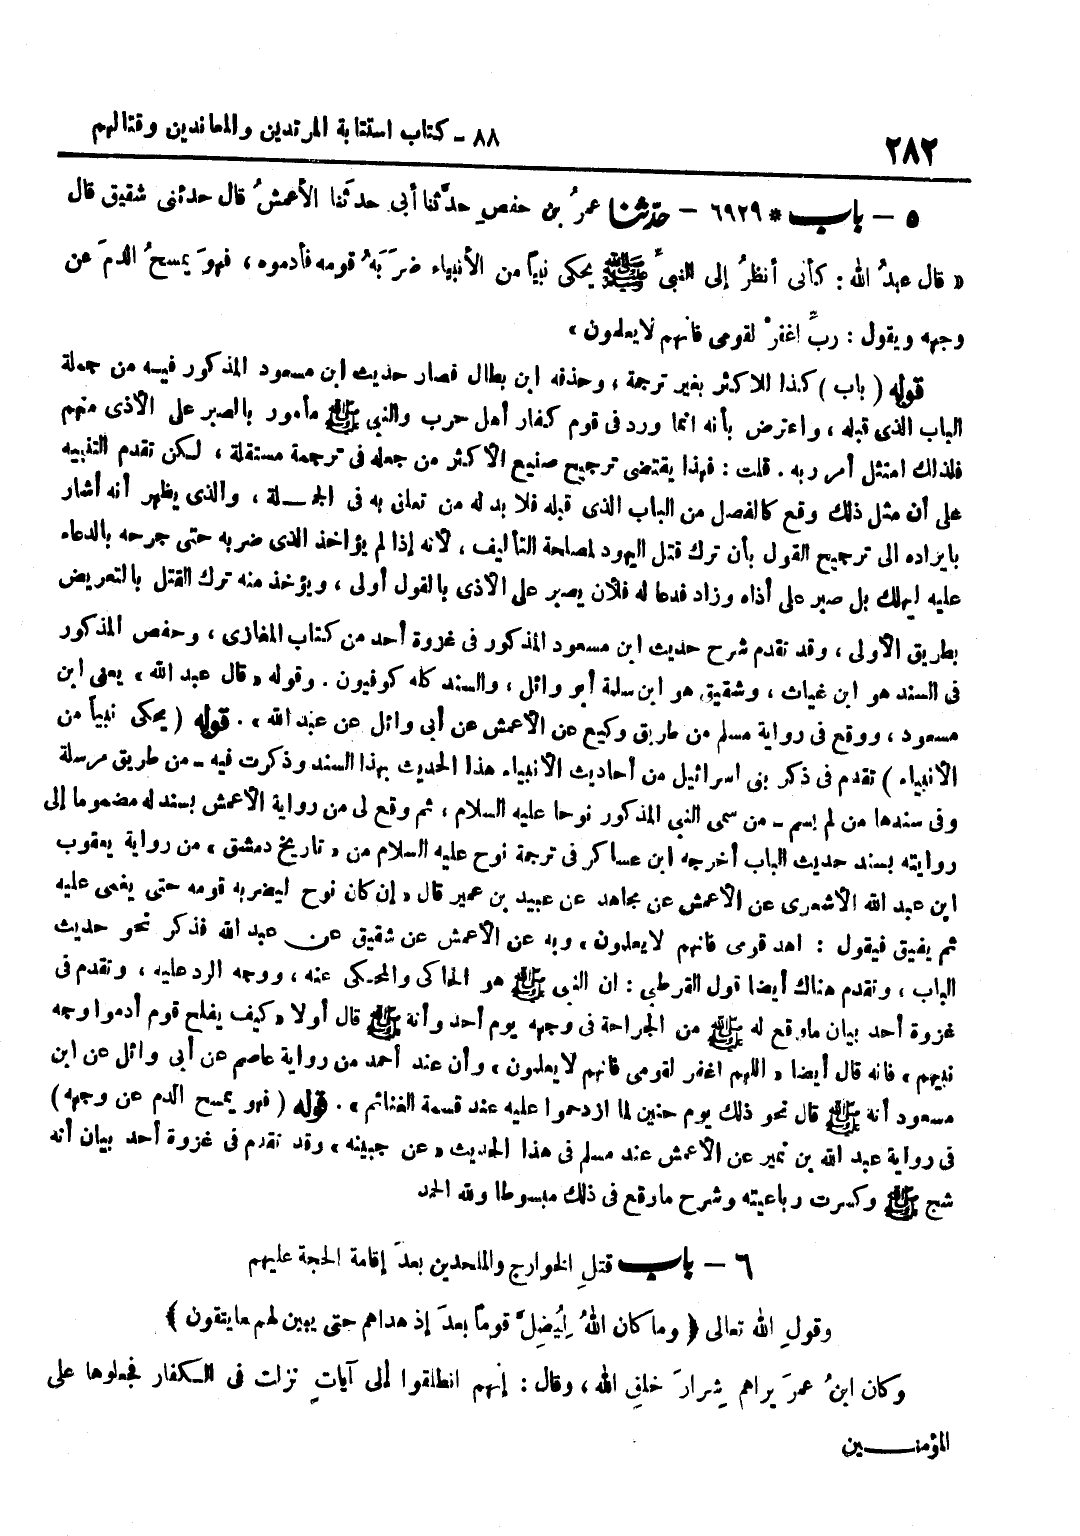 ٢٨٢
٨٨ - كتاب استتابة المرتدين والمعاندين وقتالهم
٥ - باب * ٦٩٢٩ - حدّثنا عمرُ بن حفصٍ حدَّثنا أبى حدَّثنا الأعمشُ قال حدثنى شقيق قال
« قال عبدُ الله : كأنى أنظرُ إلى النبىِّ ﷺ يحكى نبياً من الأنبياء ضرَبَهُ قومه فأدموه ، فهوَ يمسحُ الدمَ عن
وجهه ويقول : ربِّ اغفرْ لقومى فانهم لايعلمون »
قوله ( باب ) كذا للاكثر بغير ترجمة ، وحذفه ابن بطال فصار حديث ابن مسعود المذكور فيه من جملة
الباب الذى قبله ، واعترض بأنه انما ورد فى قوم كفار أهل حرب والنبي ﷺ مأمور بالصبر على الأذى منهم
فلذلك امتثل أمر ربه . قلت : فهذا يقتضى ترجيح صنيع الأكثر من جعله فى ترجمة مستقلة ، لكن تقدم التنبيه
على أن مثل ذلك وقع كالفصل من الباب الذى قبله فلا بد له من تعلق به فى الجملة ، والذى يظهر أنه أشار
بايراده الى ترجيح القول بأن ترك قتل اليهود لمصلحة التأليف ، لأنه إذا لم يؤاخذ الذى ضربه حتى جرحه بالدعاء
عليه ليهلك بل صبر على أذاه وزاد فدعا له فلأن يصبر على الأذى بالقول أولى ، ويؤخذ منه ترك القتل بالتعريض
بطريق الأولى ، وقد تقدم شرح حديث ابن مسعود المذكور فى غزوة أحد من كتاب المغازى ، وحفص المذكور
فى السند هو ابن غياث ، وشقيق هو ابن سلمة أبو وائل ، والسند كله كوفيون . وقوله « قال عبد الله » يعنى ابن
مسعود ، ووقع فى رواية مسلم من طريق وكيع عن الأعمش عن أبى وائل عن عبد الله » . قوله ( يحكى نبياً من
الأنبياء ) تقدم فى ذكر بنى اسرائيل من أحاديث الأنبياء هذا الحديث بهذا السند وذكرت فيه - من طريق مرسلة
وفى سندها من لم يسم - من سمى النبي المذكور نوحا عليه السلام ، ثم وقع لى من رواية الأعمش بسند له مضموما إلى
روايته بسند حديث الباب أخرجه ابن عساكر فى ترجمة نوح عليه السلام من « تاريخ دمشق » من رواية يعقوب
ابن عبد الله الأشعرى عن الأعمش عن مجاهد عن عبيد بن عمير قال « إن كان نوح ليضربه قومه حتى يغمى عليه
ثم يفيق فيقول : اهد قومى فانهم لايعلمون » وبه عن الأعمش عن شقيق عن عبد الله فذكر نحو حديث
الباب ، وتقدم هناك أيضا قول القرطبي : ان النبى ﷺ هو الحاكى والمحكى عنه ، ووجه الرد عليه ، وتقدم فى
غزوة أحد بيان ماوقع له ﷺ من الجراحة فى وجهه يوم أحد وأنه ﷺ قال أولا « كيف يفلح قوم أدموا وجه
نبيهم » فانه قال أيضا « اللهم اغفر لقومى فانهم لايعلمون » وأن عند أحمد من رواية عاصم عن أبى وائل عن ابن
مسعود أنه ﷺ قال نحو ذلك يوم حنين لما ازدحموا عليه عند قسمة الغنائم » . قوله ( فهو يمسح الدم عن وجهه )
فى رواية عبد الله بن نمير عن الأعمش عند مسلم فى هذا الحديث « عن جبينه » وقد تقدم فى غزوة أحد بيان أنه
شج ﷺ وكسرت رباعيته وشرح ماوقع فى ذلك مبسوطا ولله الحمد
٦ - باب قتلِ الخوارج والملحدين بعدَ إقامة الحجة عليهم
وقولِ الله تعالى ﴿ وما كان اللهُ لِيُضِلَّ قوماً بعدَ إذ هداهم حتى يبين لهم مايتقون ﴾
وكان ابنُ عمرَ يراهم شِرارَ خلقِ الله ، وقال : إنهم انطلقوا إلى آياتٍ نزلت فى الكفار فجعلوها على
المؤمنين